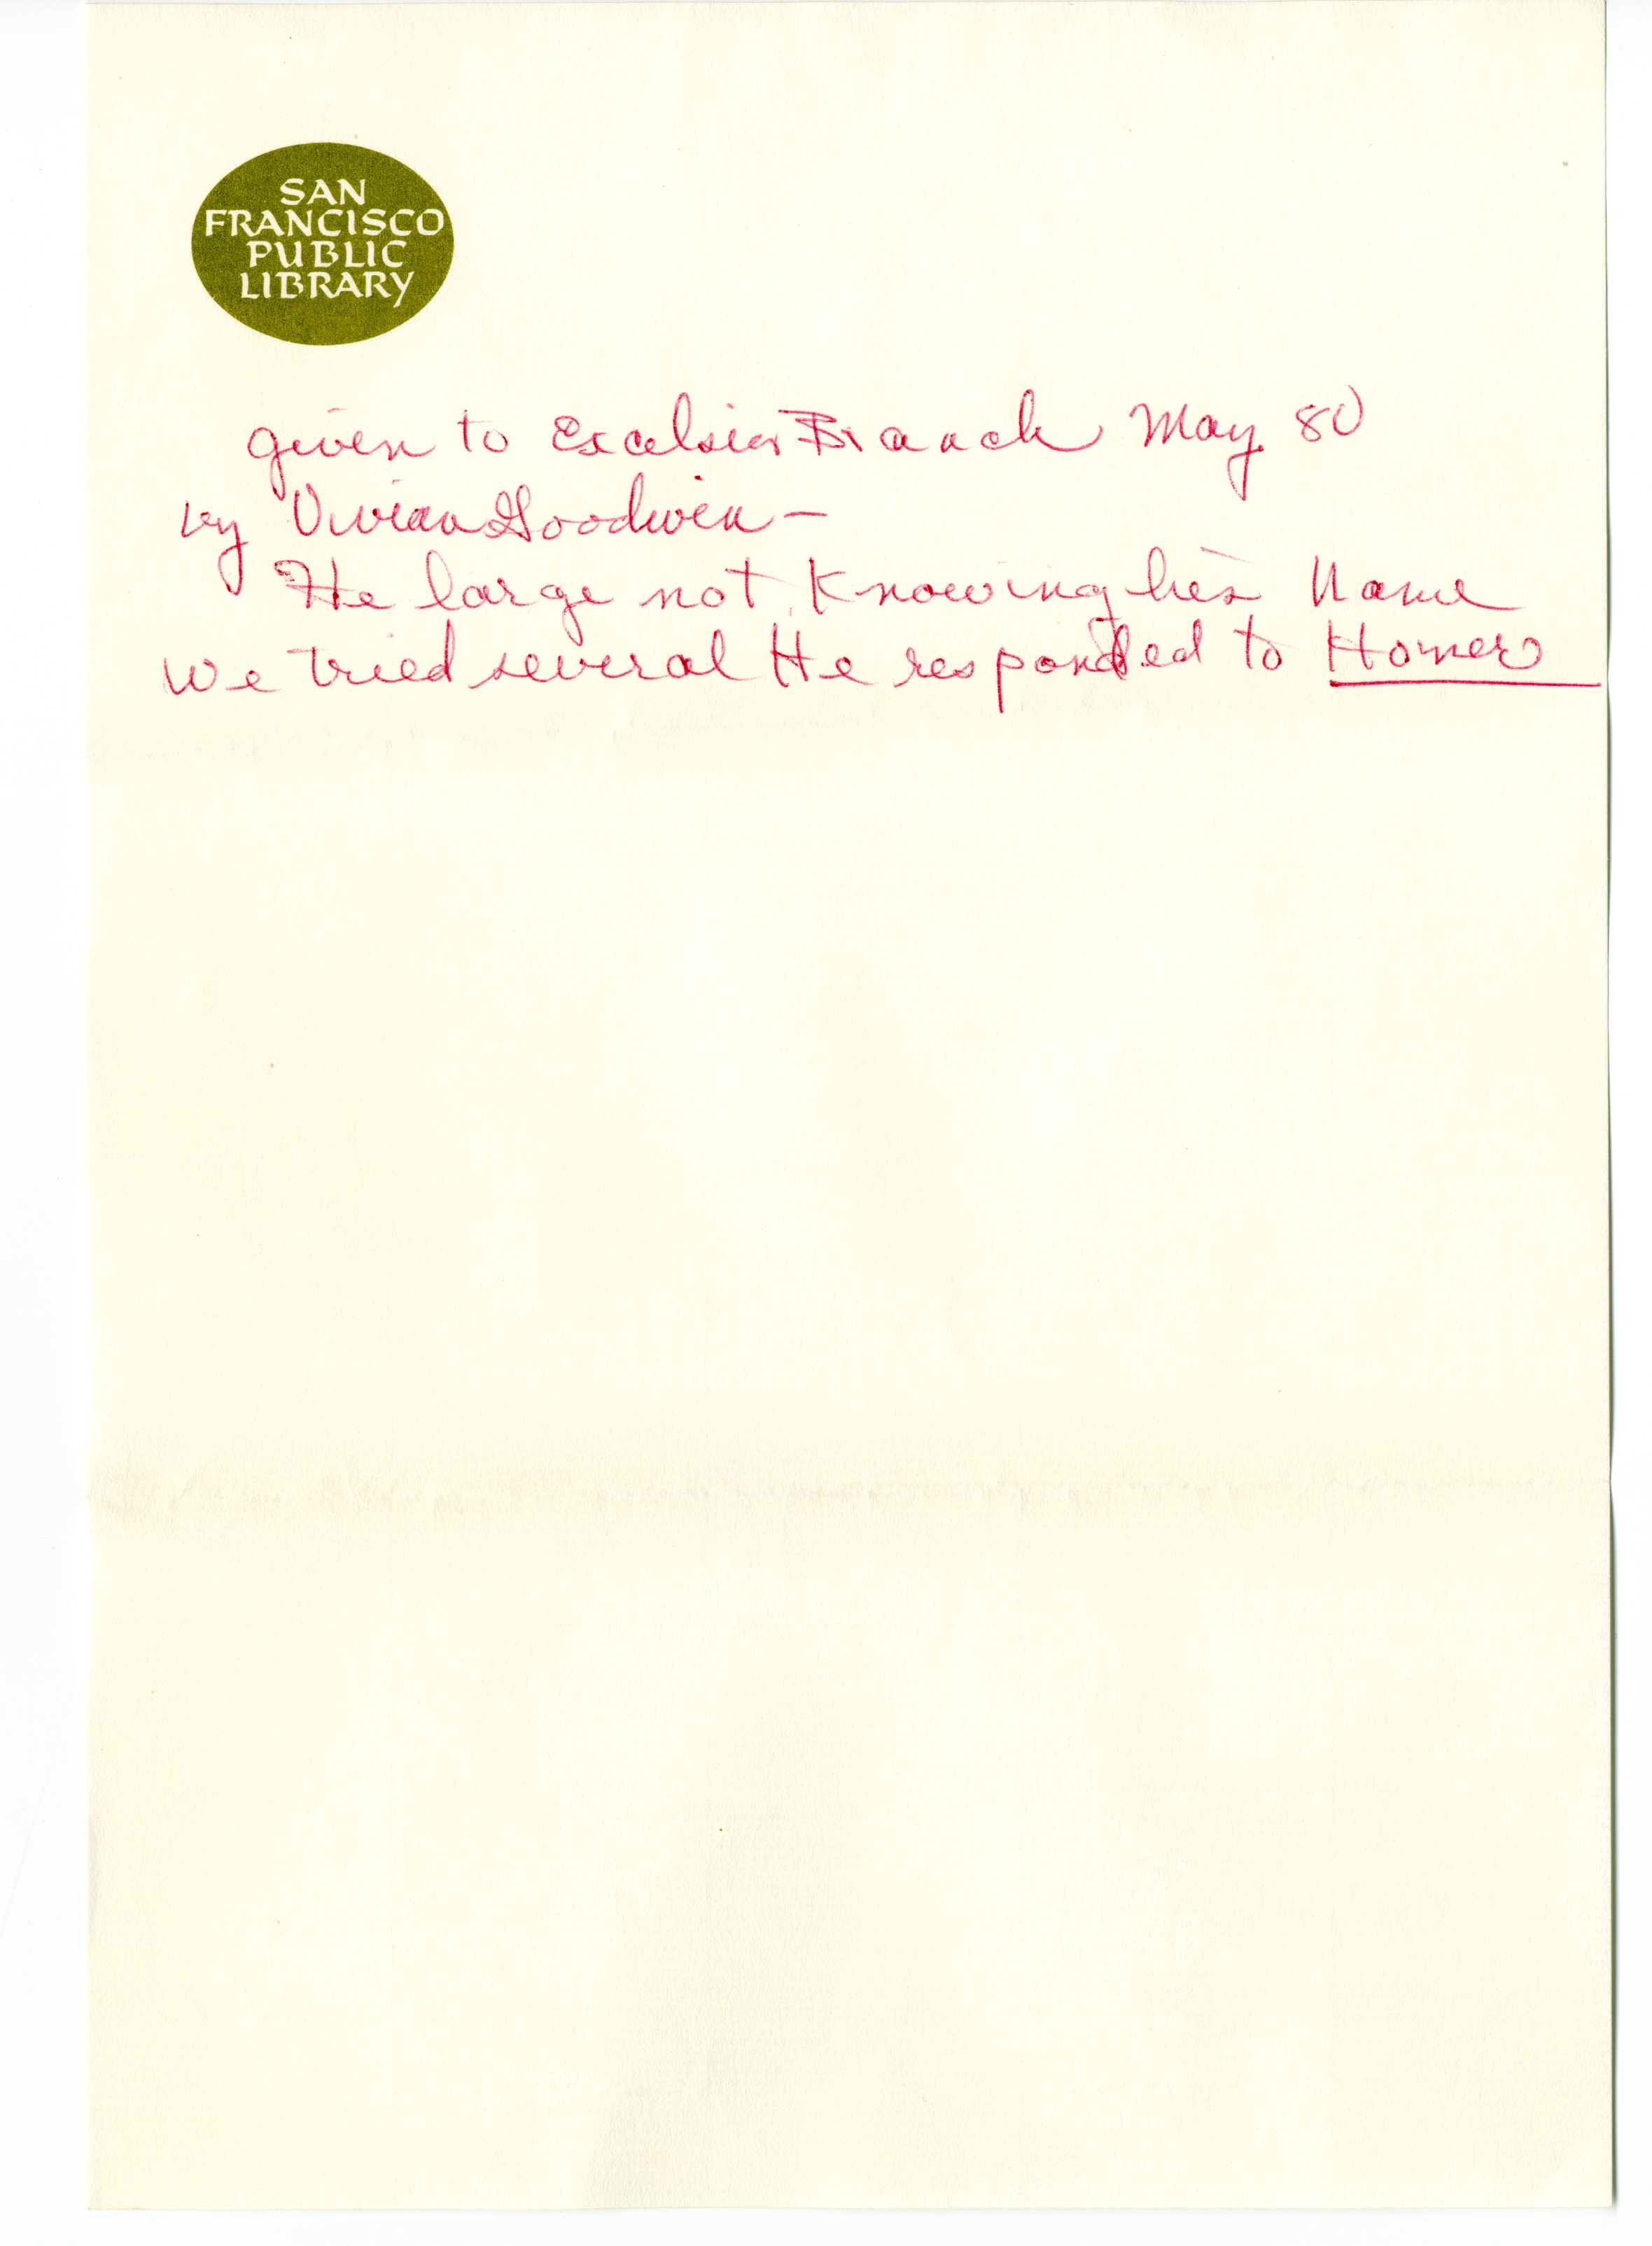 SAN
FRANCISCO
PUBLIC
LIBRARY
given to Excelsior Branch May 80
by Vivian Goodwin —
He large not Knowing his Name
We tried several He responded to Homer